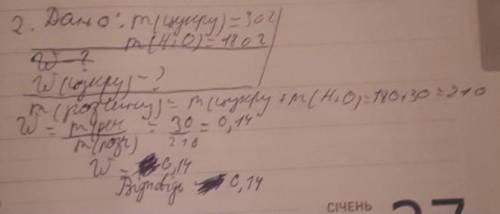 2. Дано: m(цукру)=30г
m(H₂O)=180г
W-?
W(цукру)-?
m(розчину)= m(цукру)+m(H₂O)=180+30=210
W = m реч / m(розч) = 30/210 = 0,14
W = 0,14
Відповідь 0,14
СІЧЕНЬ
27